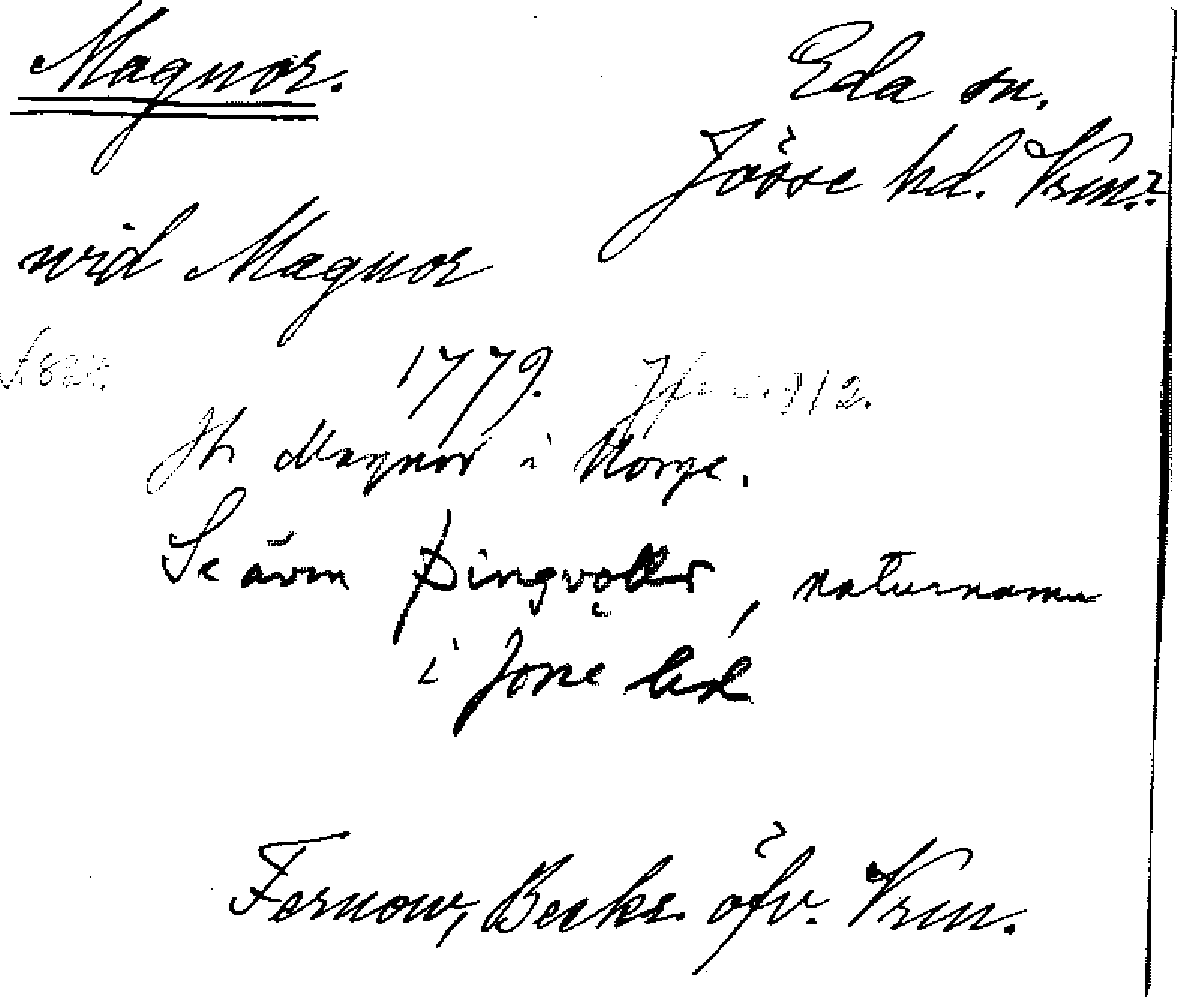 Magnor.
Eda sn.
Jösse hd. Vrm.?
wid Magnor
1779.
Jfr 812.
Magnor i Norge.
Se även Þingvǫllr, naturnamn
i Jösse hd
Fernow, Beskr. öfv. Vrm.